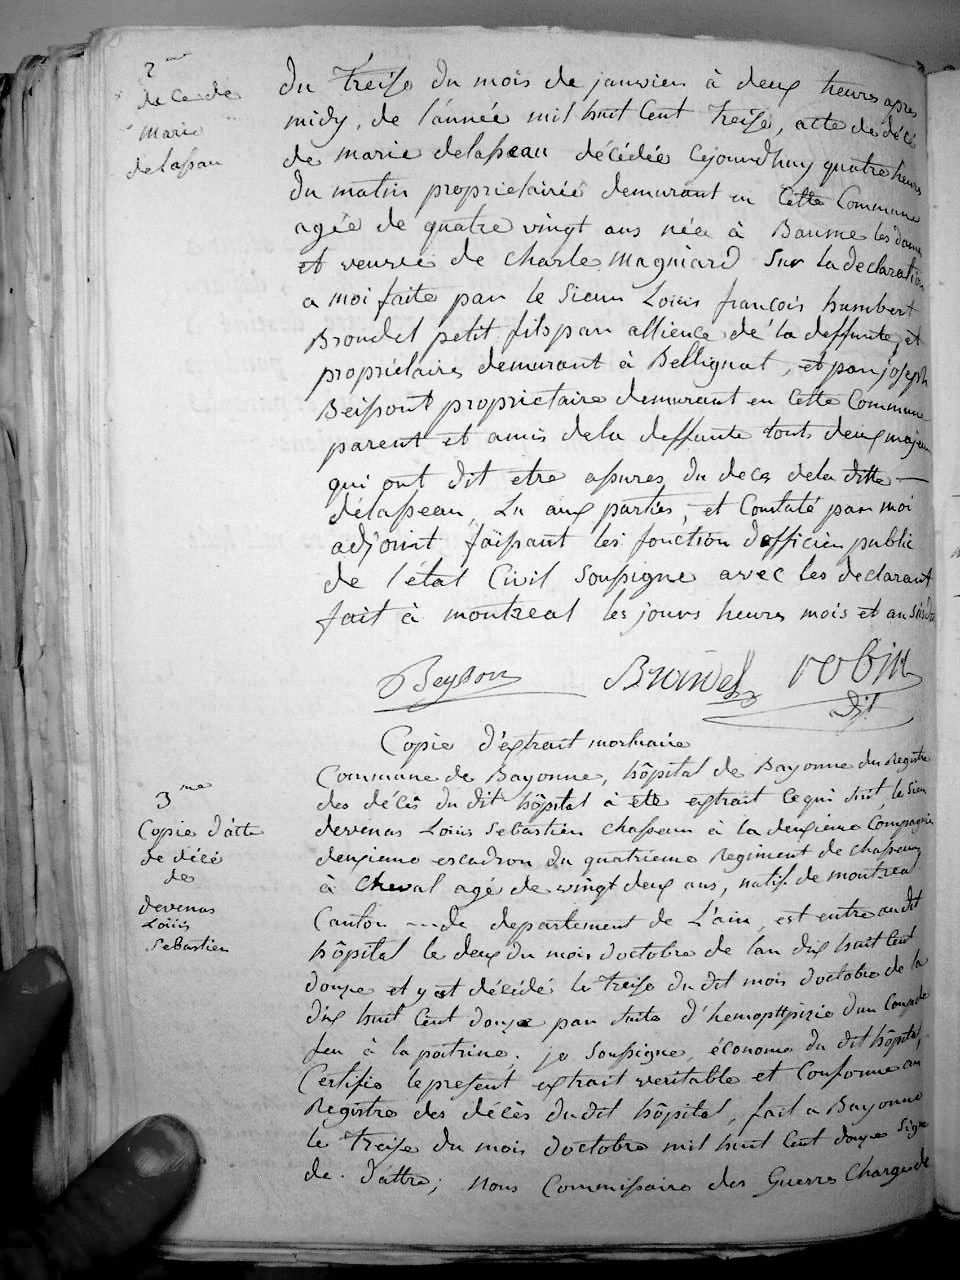 2me
de Cede
Marie
delassau
du treise du mois de janvier à deux heures apres
midy, de l'année mil huit Cent treise, acte de décé
de marie delasseau décédée Cejourdhuy quatre heures
du matin proprietairée demurant en Cette Commune
agée de quatre vingt ans née à Baume les dame
et veuve de Charle Magniard Sur la declaration
a moi faite par le Sieur Louis françois humbert
Brondel petit fils par allience de la deffunte, et
propriétaire demurant à Bellignat, et par joseph
Beissont proprietaire demurant en Cette Commune
parent et amis dela deffunte touts deux majeur
qui ont dit etre assures du deces dela ditte
délasseau, Lu aux parties, et Constaté par moi
adjoint faissant les fonction dofficier public
de l'état Civil Soussigne avec les declarant
fait à montreal les jours heures mois et an Susdit
Beysson Brondel robin
Copie d'extrait mortuaire
3me
Copie d'atte
de décé
de
devenas
Loüis
Sebastien
Commune de Bayonne, hôpital de Bayonne du Registre
des décès du dit hôpital à ete extrait Ce qui suit, le Sieur
devenas Loüis Sebastien chasseur à la deuxieme Compagnie
deuxieme escadron du quatrieme Regiment de chasseurs
à Cheval agé de vingt deux ans, natif de montreal
Canton de departement de L'ain, est entre audit
hôpital le deux du mois doctobre de l'an dix huit Cent
douze et y est décédé le treise du dit mois doctobre de la
dix huit Cent douze par suite d'hemoptpizie d'un Coup de
feu à la poitrine, je soussigne, économe du dit hôpital,
Certifie le present extrait veritable et Conforme au
Registre des décès dudit hôpital, fait a Bayonne
le treise du mois doctobre mil huit Cent douze Signe
de. d'attre; Nous Commissaire des Guerres Charge de